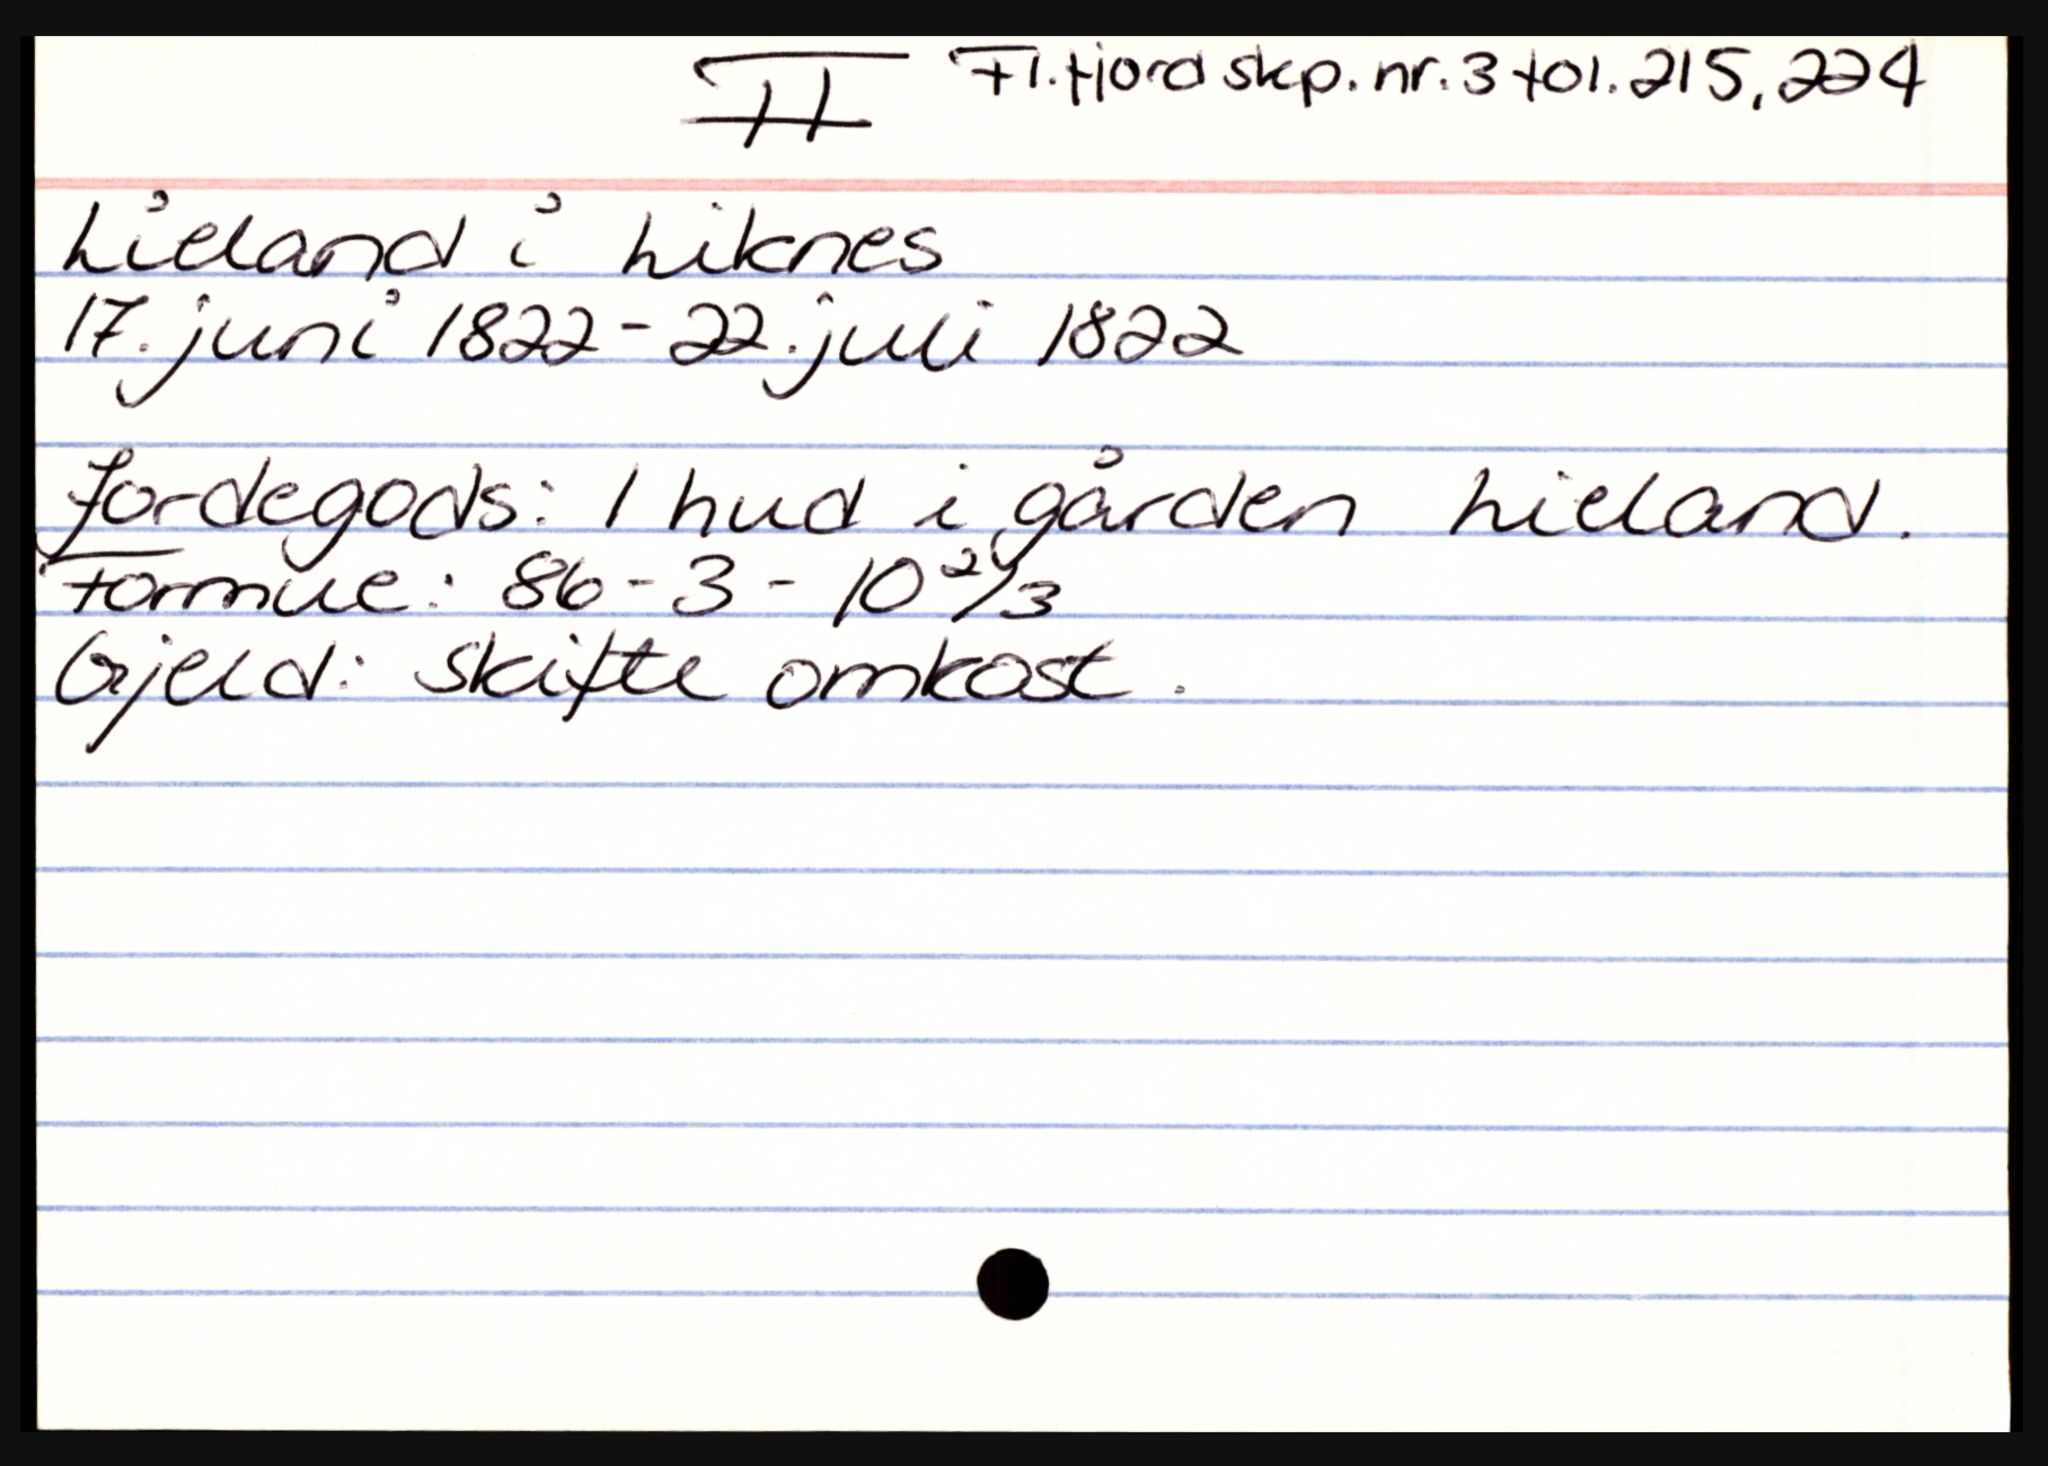 II Fl.fjord skp. nr. 3 fol. 215, 224
Lieland i Liknes
17. juni 1822 - 22. juli 1822
Jordegods: 1 hud i gården Lieland.
Formue: 86 - 3 - 10 2/3
Gjeld: skifte omkost.